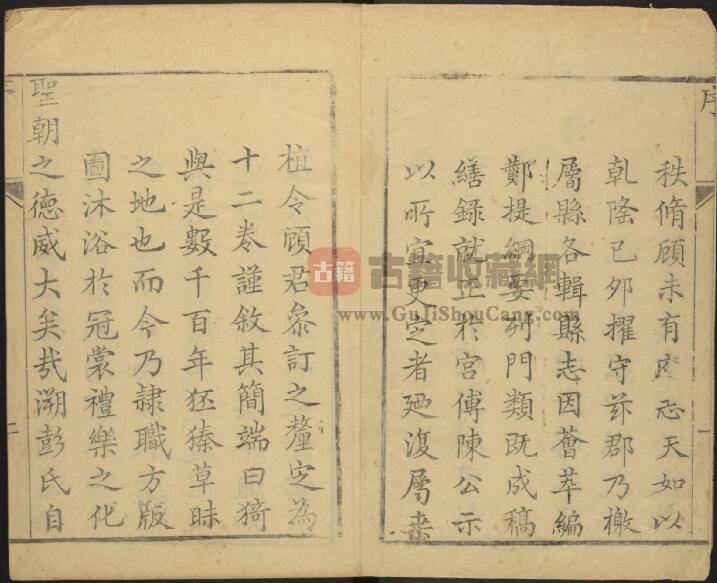 序
秩脩顧未有 志天如以
乾隆己夘擢守茲郡乃檄
屬縣各輯縣志因薈萃編
鄭提綱要列門類既成稿
繕錄就正於宮傅陳公示
以所宜更定者廼復屬桑
植令顧君叅訂之釐定為
十二卷謹敘其簡端曰猗
與是數千百年狉獉草昧
之地也而今乃隷職方版
圖沐浴於冠裳禮樂之化
聖朝之德威大矣哉溯彭氏自
古籍 古籍收藏網
www.GuJiShouCang.com